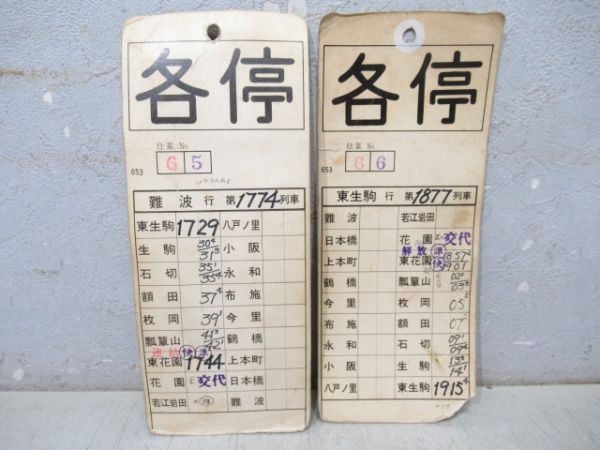 各停
仕業 No
653
6 5
難波 行 第1774列車
東生駒 1729 八戸ノ里
生駒 30⁴ 31³ 小阪
石切 35¹ 35⁴ 永和
額田 37⁴ 布施
枚岡 39¹ 今里
瓢簞山 41³ 42¹ 鶴橋
連結 快 準
東花園 1744 上本町
花園 交代 日本橋
若江岩田 難波
各停
仕業 No
653
6 6
東生駒 行 第1877列車
難波 若江岩田
日本橋 花園 交代
解放 準 快
上本町 東花園 1857² 1901
鶴橋 瓢簞山 02¹ 03³
今里 枚岡 05²
布施 額田 07²
永和 石切 09¹ 09⁴
小阪 生駒 13³ 14¹
八戸ノ里 東生駒 1915⁴